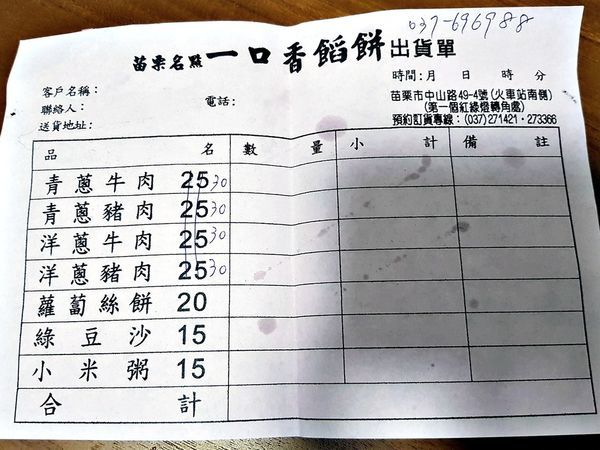 037-696988
苗栗名點一口香餡餅出貨單
時間:月 日 時 分
客戶名稱:
聯絡人: 電話:
送貨地址:
苗栗市中山路49-4號(火車站南側)
(第一個紅綠燈轉角處)
預約訂貨專線:(037)271421·273366
品名 數量 小計 備註
青蔥牛肉 25 30
青蔥豬肉 25 30
洋蔥牛肉 25 30
洋蔥豬肉 25 30
蘿蔔絲餅 20
綠豆沙 15
小米粥 15
合計